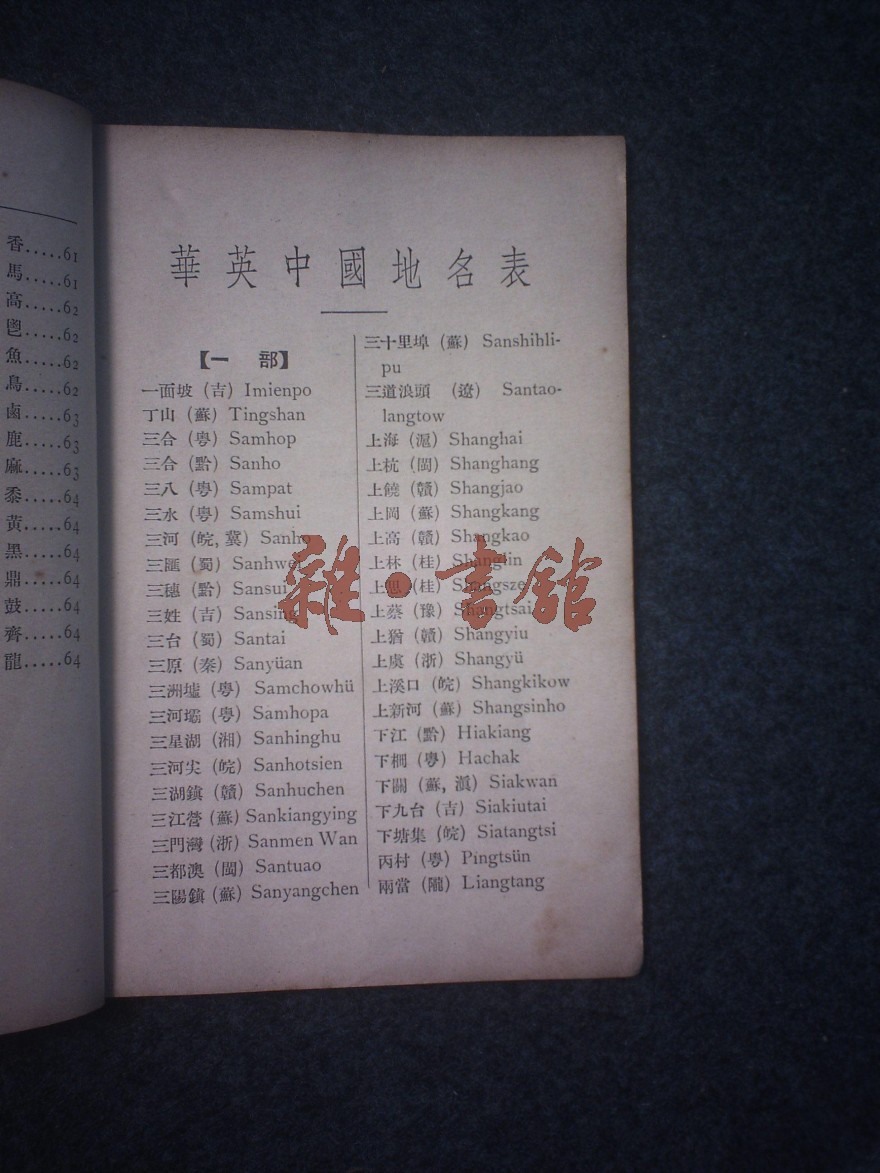 香.....61
馬.....61
高.....62
鬯.....62
魚.....62
鳥.....62
鹵.....63
鹿.....63
麻.....63
黍.....64
黄.....64
黑.....64
鼎.....64
鼓.....64
齊.....64
龍.....64
華英中國地名表
【一 部】
一面坡 (吉) Imienpo
丁山 (蘇) Tingshan
三合 (粤) Samhop
三合 (黔) Sanho
三八 (粤) Sampat
三水 (粤) Samshui
三河 (皖, 冀) Sanho
三匯 (蜀) Sanhwei
三穗 (黔) Sansui
三姓 (吉) Sansing
三台 (蜀) Santai
三原 (秦) Sanyüan
三洲墟 (粤) Samchowhü
三河壩 (粤) Samhopa
三星湖 (湘) Sanhinghu
三河尖 (皖) Sanhotsien
三湖鎮 (贛) Sanhuchen
三江營 (蘇) Sankiangying
三門灣 (浙) Sanmen Wan
三都澳 (閩) Santuao
三陽鎮 (蘇) Sanyangchen
三十里埠 (蘇) Sanshihli-
pu
三道浪頭 (遼) Santao-
langtow
上海 (滬) Shanghai
上杭 (閩) Shanghang
上饒 (贛) Shangjao
上岡 (蘇) Shangkang
上高 (贛) Shangkao
上林 (桂) Shanglin
上思 (桂) Shangsze
上蔡 (豫) Shangtsai
上猶 (贛) Shangyiu
上虞 (浙) Shangyü
上溪口 (皖) Shangkikow
上新河 (蘇) Shangsinho
下江 (黔) Hiakiang
下柵 (粤) Hachak
下關 (蘇, 滇) Siakwan
下九台 (吉) Siakiutai
下塘集 (皖) Siatangtsi
丙村 (粤) Pingtsün
兩當 (隴) Liangtang
雜·書館